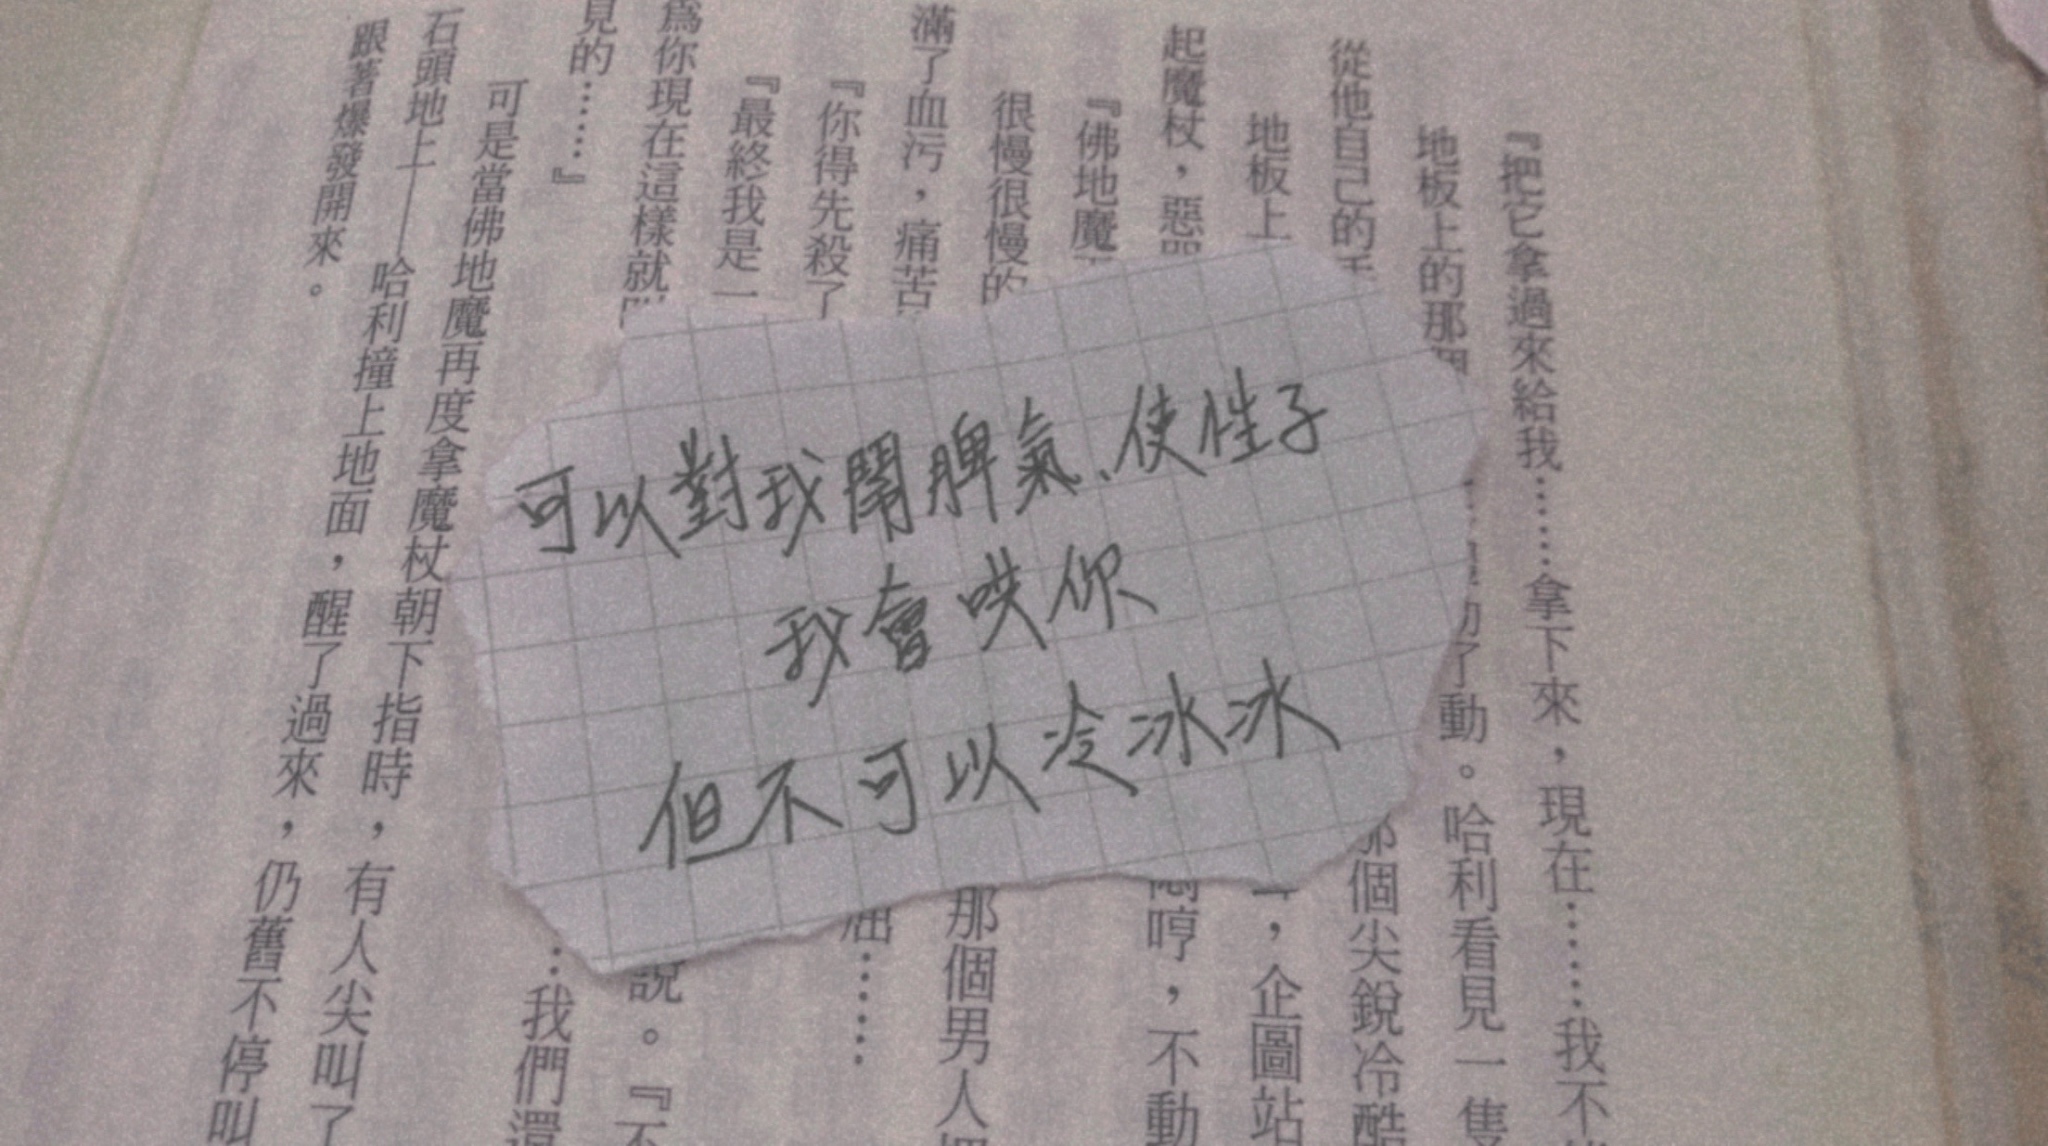 『把它拿過來給我……拿下來，現在……我不
地板上的那
動了動。哈利看見一隻
從他自己的
那個尖銳冷酷
地板上
，企圖站
起魔杖，惡
悶哼，不動
『佛地魔
很慢很慢的
那個男人
滿了血污，痛苦
『你得先殺了
……
『最終我是一
為你現在這樣就
說。『不
見的……』
…我們還
可是當佛地魔再度拿魔杖朝下指時，有人尖叫了
石頭地上——哈利撞上地面，醒了過來，仍舊不停叫
跟著爆發開來。
可以對我鬧脾氣、使性子
我會哄你
但不可以冷冰冰